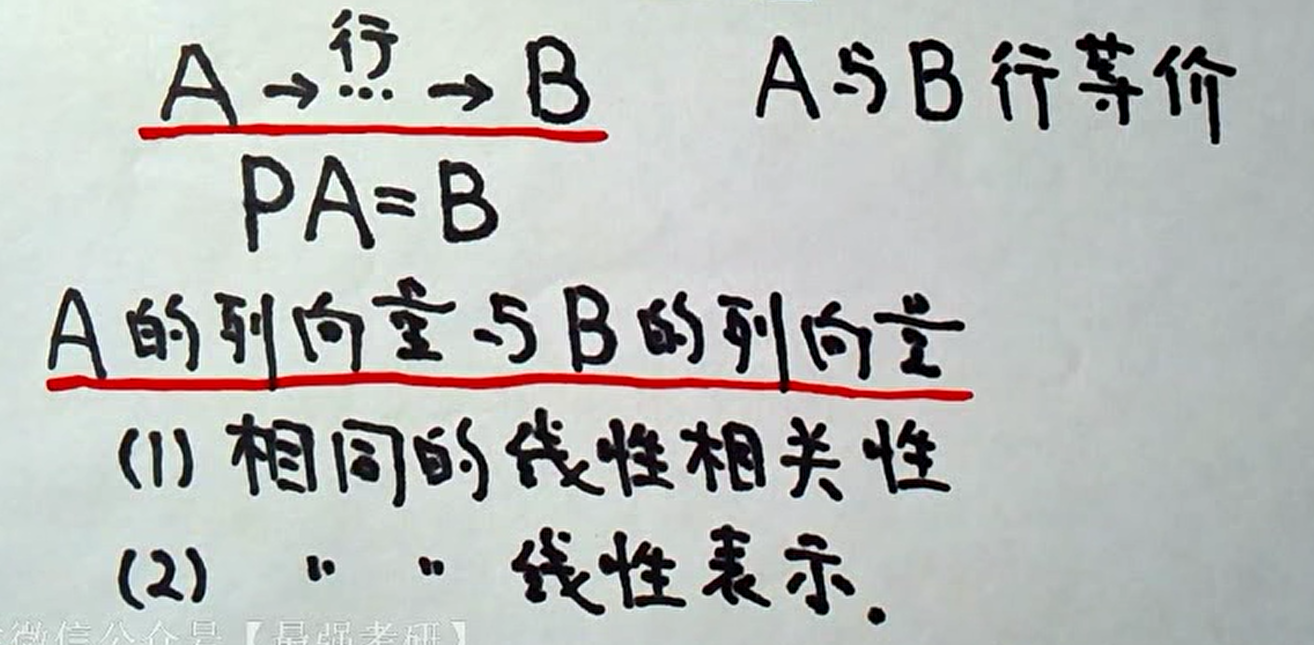 A → 行 … → B A与B 行等价
PA=B
A 的列向量与B的列向量
(1) 相同的线性相关性
(2) " " 线性表示.
微信公众号【最强考研】